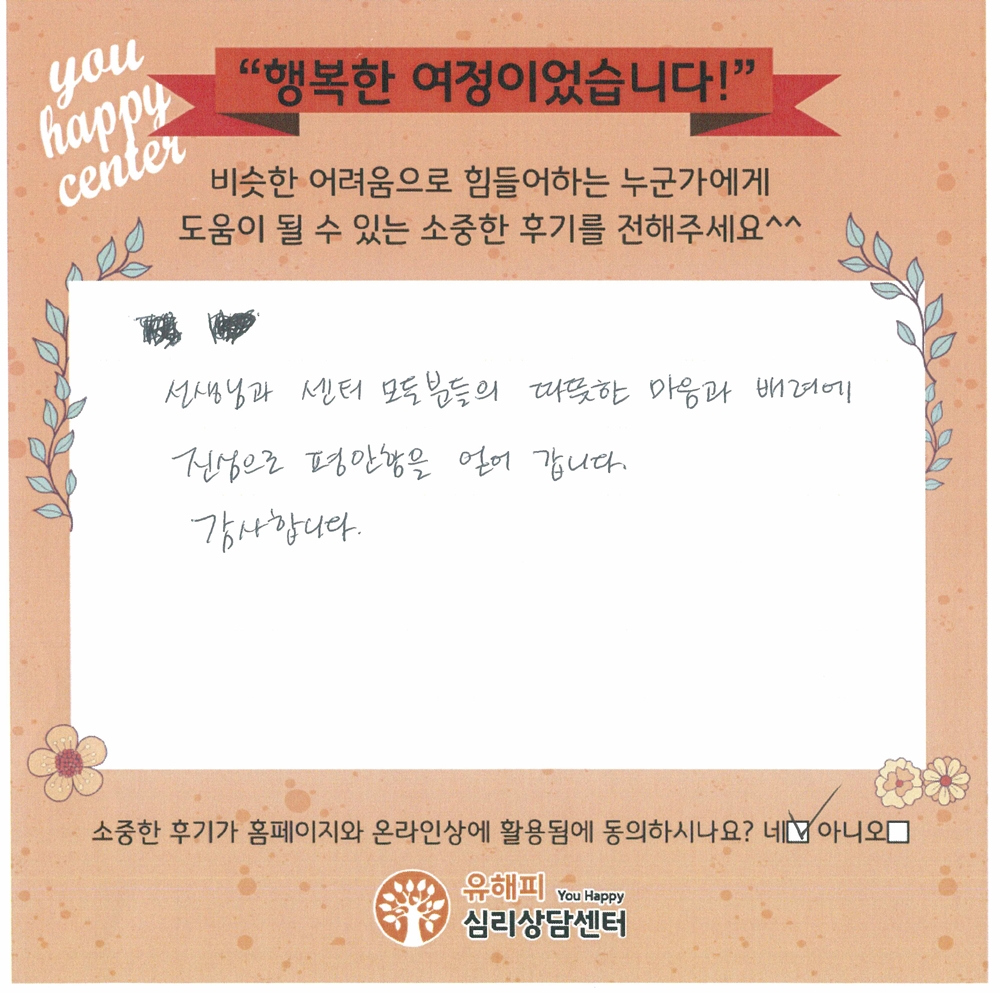 you
happy
center
“행복한 여정이었습니다!”
비슷한 어려움으로 힘들어하는 누군가에게
도움이 될 수 있는 소중한 후기를 전해주세요^^
선생님과 센터 모든분들의 따뜻한 마음과 배려에
진심으로 평안함을 얻어 갑니다.
감사합니다.
소중한 후기가 홈페이지와 온라인상에 활용됨에 동의하시나요? 네 아니오
유해피 You Happy
심리상담센터